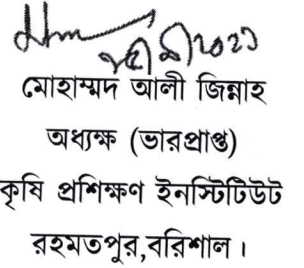 মোহাম্মদ আলী জিন্নাহ
অধ্যক্ষ (ভারপ্রাপ্ত)
কৃষি প্রশিক্ষণ ইনস্টিটিউট
রহমতপুর,বরিশাল।